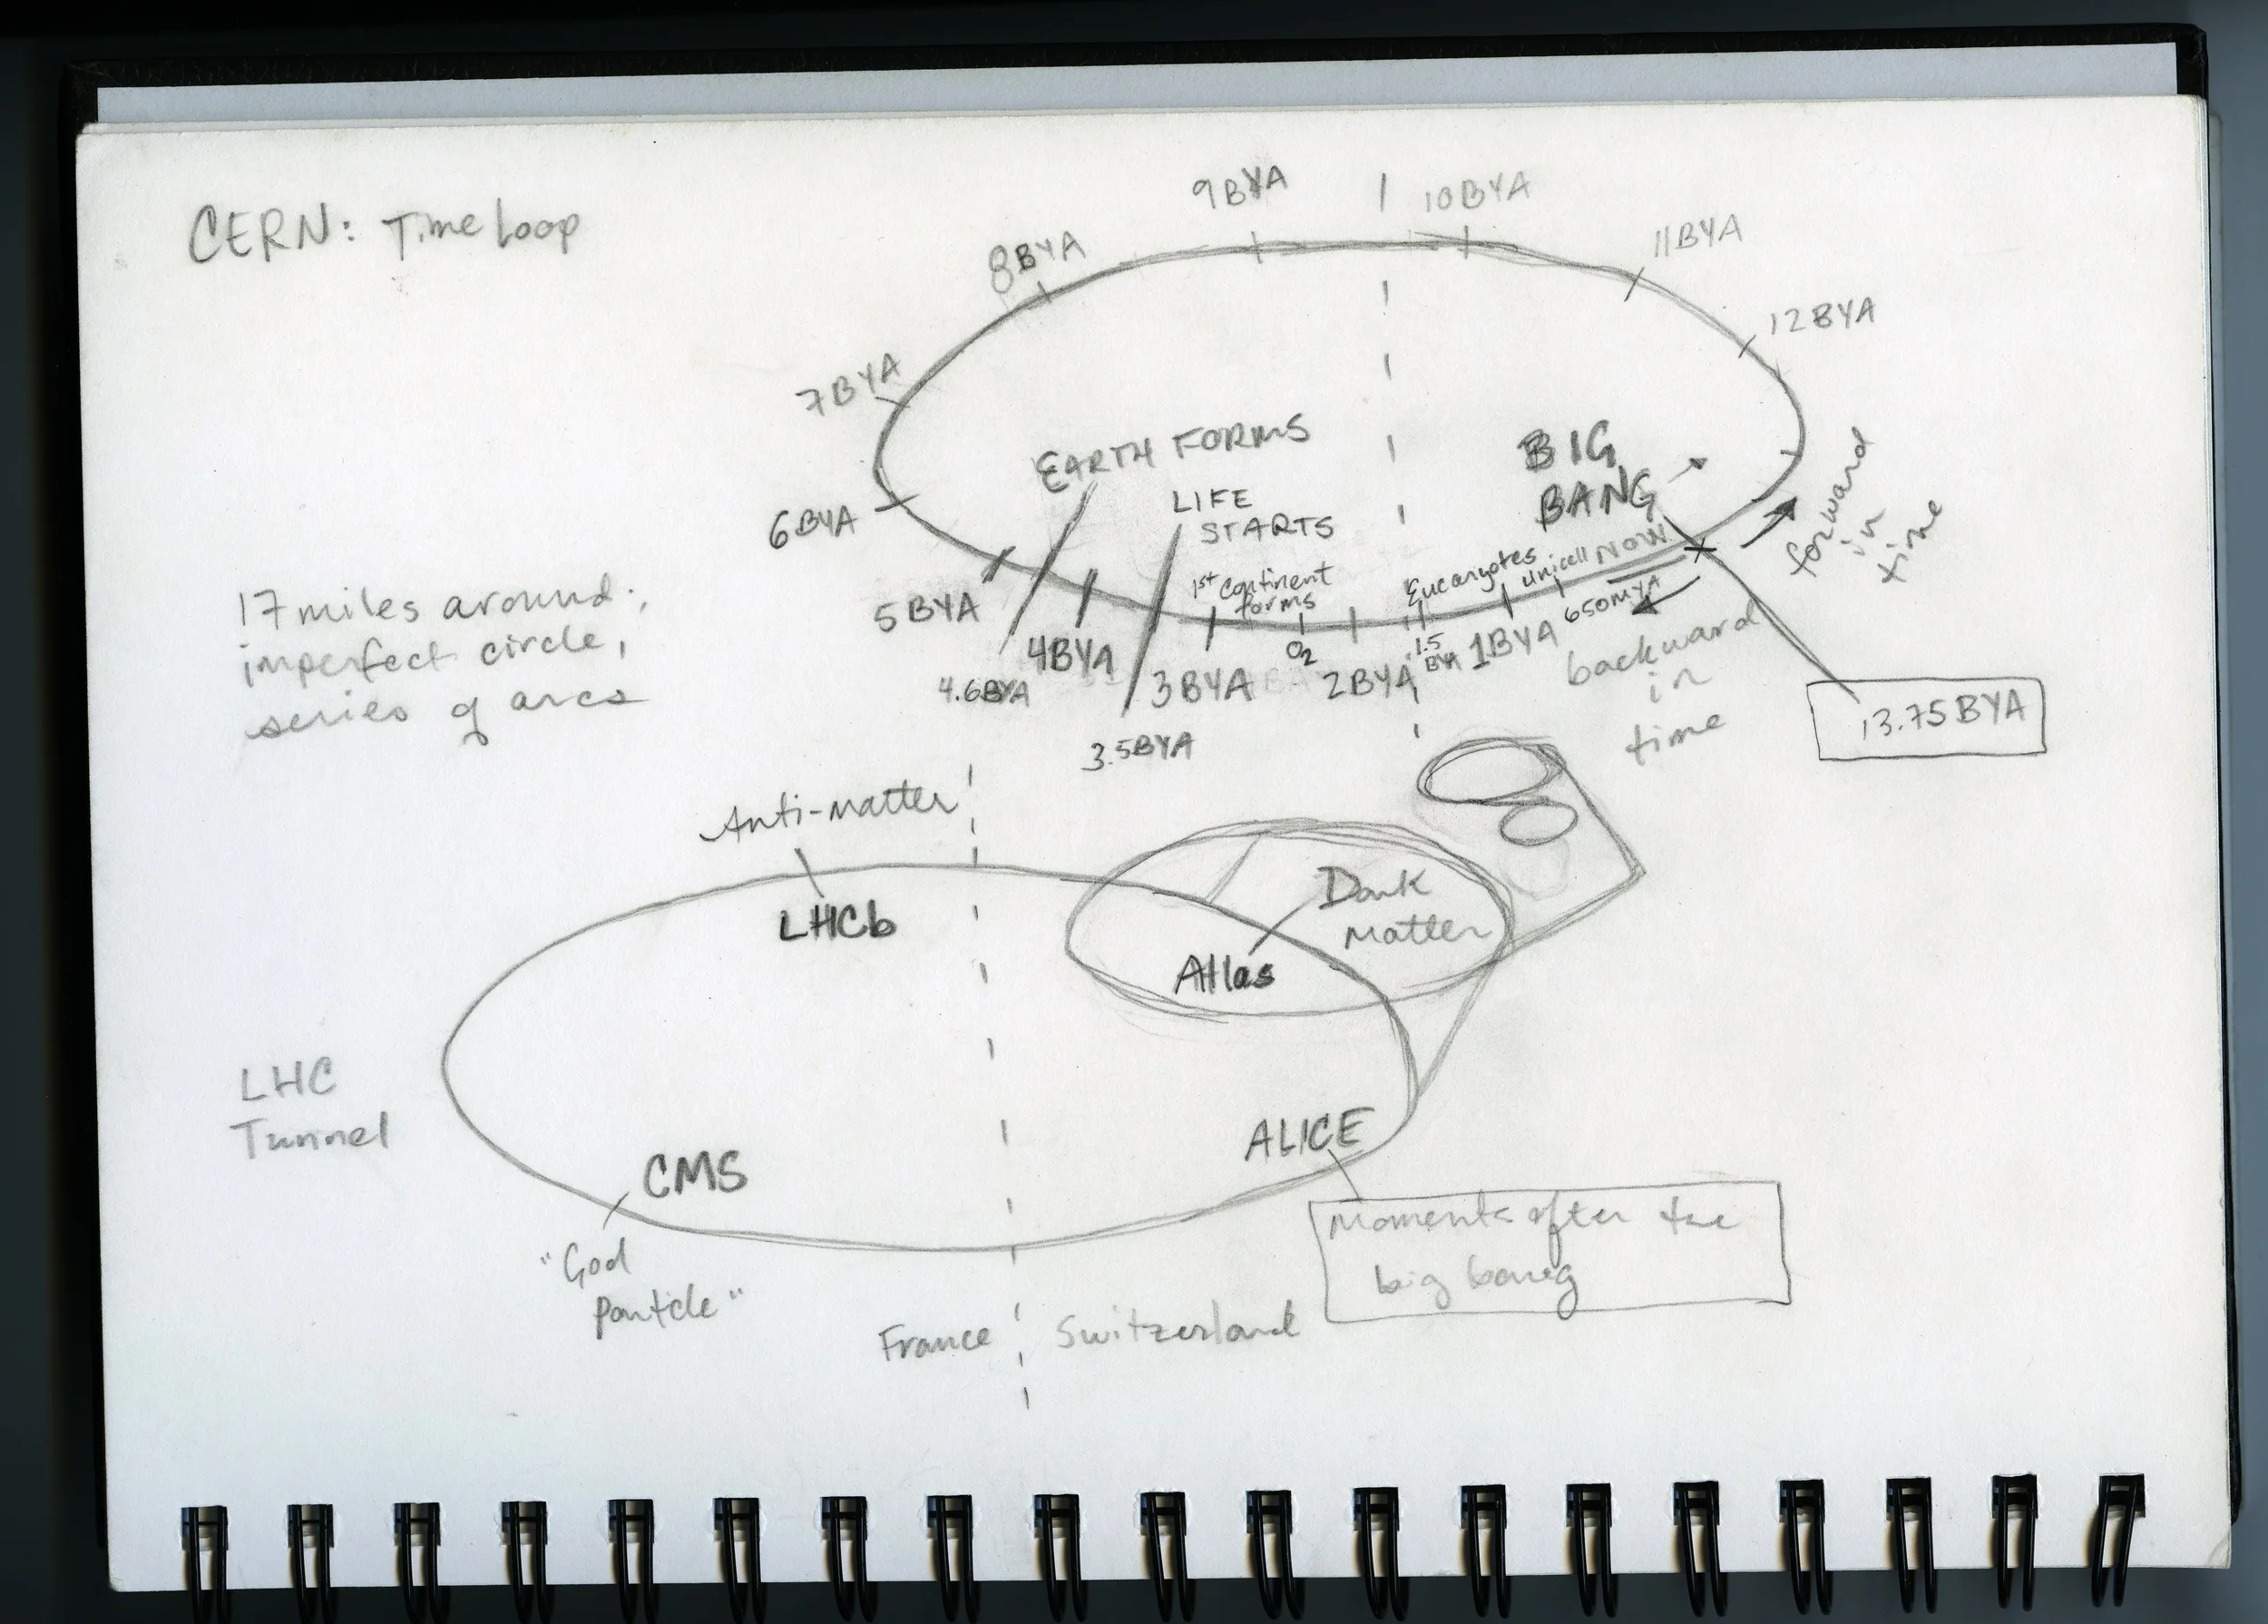 CERN: Time Loop
9BYA
10BYA
8BYA
11BYA
12BYA
7BYA
EARTH FORMS
BIG
BANG
forward
in
time
6BYA
LIFE
STARTS
1st continent
forms
Eucaryotes
unicell
NOW
5BYA
4BYA
4.6BYA
3.5BYA
3BYA
O2
2BYA
1.5
BYA
1BYA
650MYA
backward
in
time
13.75BYA
17 miles around;
imperfect circle,
series of arcs
Anti-matter
LHCb
Dark
Matter
Atlas
LHC
Tunnel
CMS
ALICE
"God
particle"
Moments after the
big bang
France
Switzerland